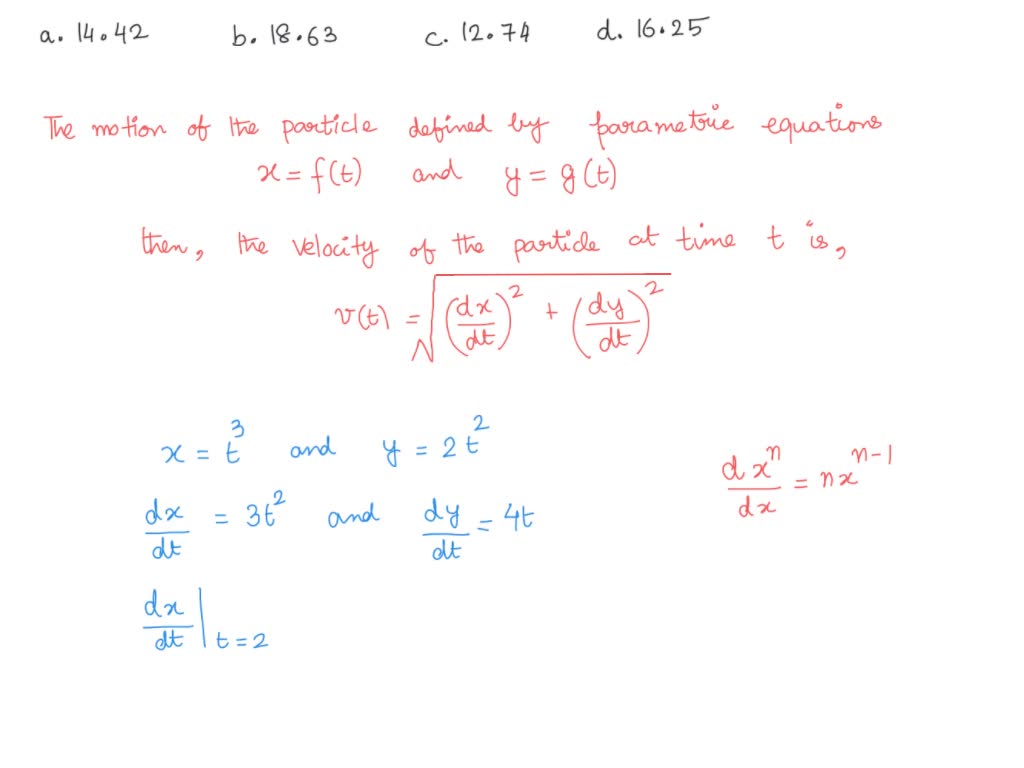 a. 14.42 b. 18.63 c. 12.74 d. 16.25
The motion of the particle defined by parametric equations
x = f(t) and y = g(t)
then, the velocity of the particle at time t is,
v(t) = √((dx/dt)² + (dy/dt)²)
x = t³ and y = 2t²
dx/dt = 3t² and dy/dt = 4t
dxⁿ/dx = nxⁿ⁻¹
dx/dt |t=2